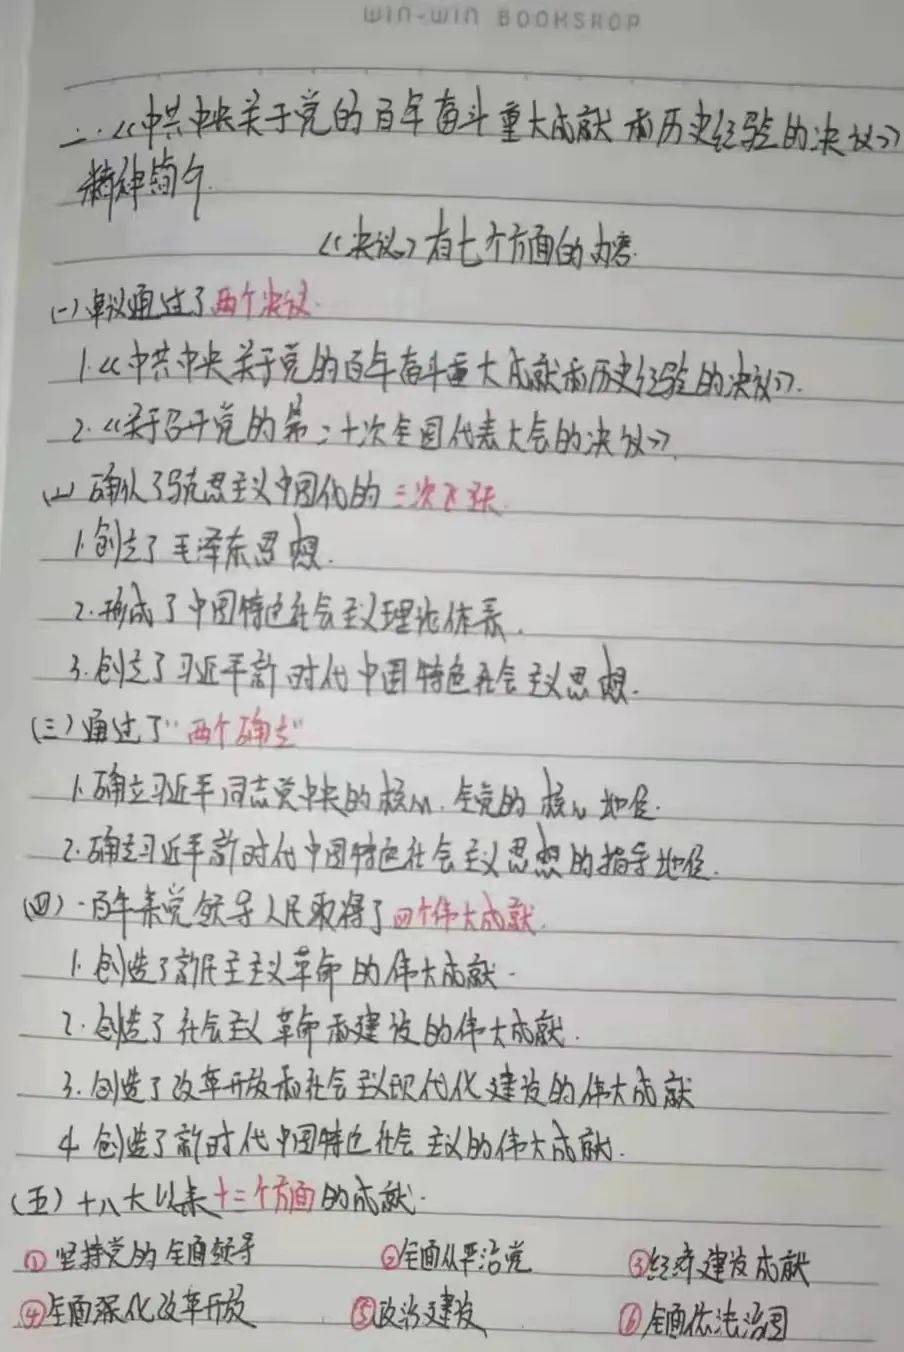 WIN-WIN BOOKSHOP
二.《中共中央关于党的百年奋斗重大成就和历史经验的决议》
精神简介.
《决议》有七个方面的内容.
(一)审议通过了两个决议.
1.《中共中央关于党的百年奋斗重大成就和历史经验的决议》.
2.《关于召开党的第二十次全国代表大会的决议》.
(二)确认了马克思主义中国化的三次飞跃.
1.创立了毛泽东思想.
2.形成了中国特色社会主义理论体系.
3.创立了习近平新时代中国特色社会主义思想.
(三)通过了"两个确立"
1.确立习近平同志党中央的核心.全党的核心地位.
2.确立习近平新时代中国特色社会主义思想的指导地位.
(四)·百年来党领导人民取得了四个伟大成就.
1.创造了新民主主义革命的伟大成就.
2.创造了社会主义革命和建设的伟大成就.
3.创造了改革开放和社会主义现代化建设的伟大成就
4.创造了新时代中国特色社会主义的伟大成就.
(五)十八大以来十三个方面的成就.
①坚持党的全面领导 ②全面从严治党 ③经济建设成就
④全面深化改革开放 ⑤政治建设 ⑥全面依法治国